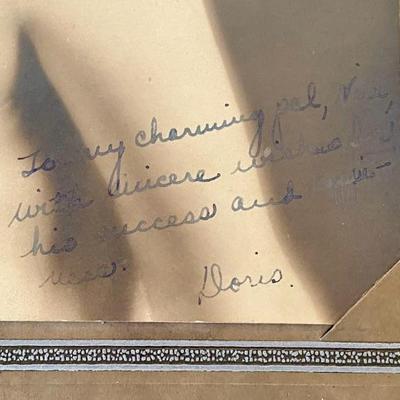 To my charming pal, Vic,
with sincere wishes for
his success and
ness.
Doris.